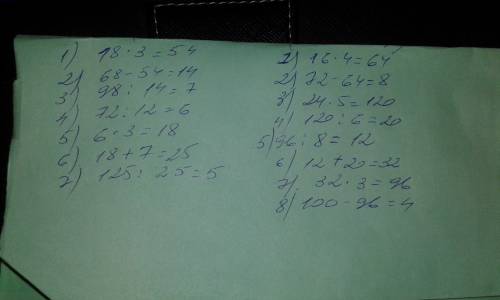 1) 18·3=54
2) 68-54=14
3) 98:14=7
4) 72:12=6
5) 6·3=18
6) 18+7=25
7) 125:25=5
1) 16·4=64
2) 72-64=8
3) 24·5=120
4) 120:6=20
5) 96:8=12
6) 12+20=32
7) 32·3=96
8) 100-96=4